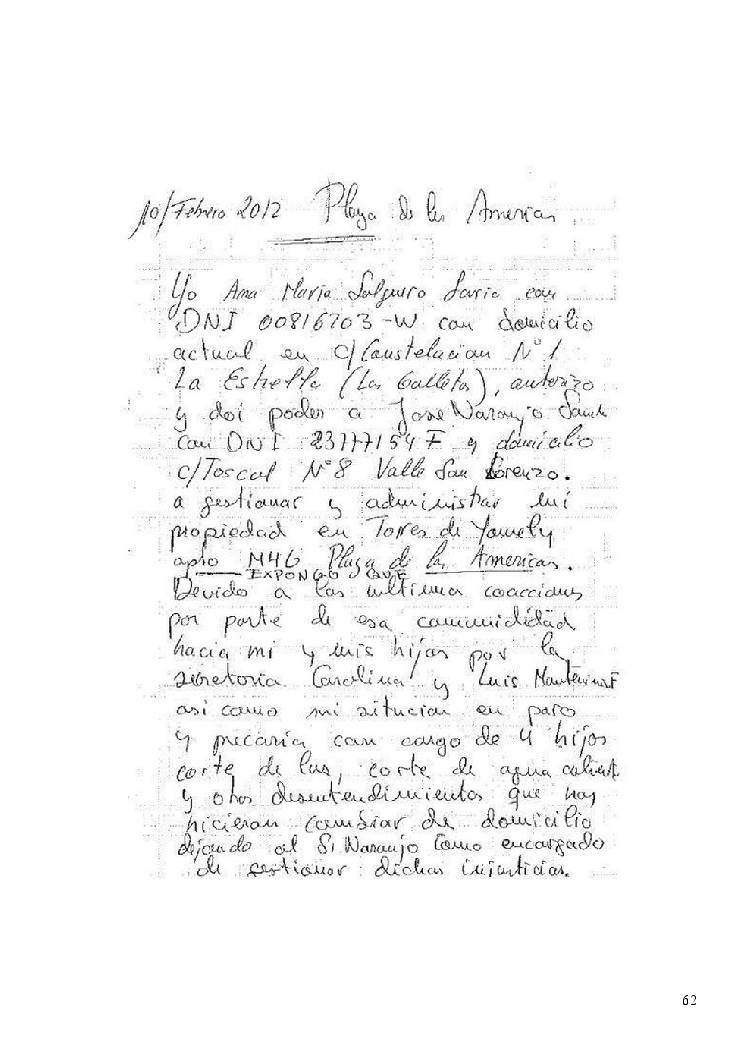 10/Febrero 2012 Playa de las Americas
Yo Ana Maria Salguero con
DNI 00816703-W con domicilio
actual en c/Constelacion Nº1
La Estrella (Las Galletas), autorizo
y doi poder a Jose Naranjo
con DNI 23777154 F y domicilio
c/Toscal Nº8 Valle San Lorenzo.
a gestionar y administrar mi
propiedad en Torres de Yomely
apto M46 Playa de las Americas.
EXPONGO QUE
Devido a las ultimas coacciones
por parte de esa communidad
hacia mi y mis hijos por la
secretaria Carolina y Luis
asi como mi situcion en paro
y precaria con cargo de 4 hijos
corte de lus, corte de agua caliente
y otros desentendimientos que nos
hicieron cambiar de domicilio
dejando al Sr Naranjo como encargado
de gestionar dichas injusticias.
62